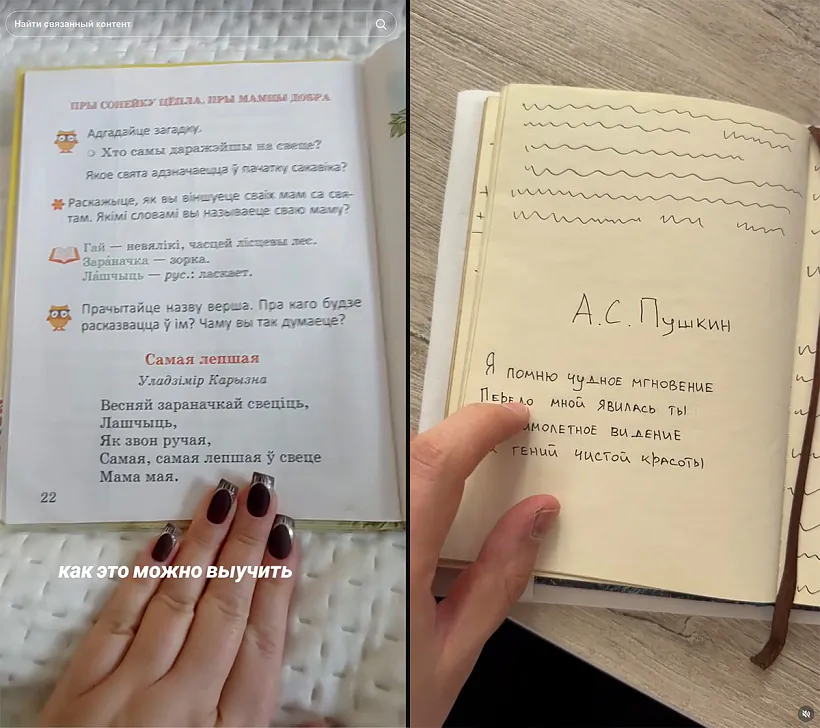 Найти связанный контент
ПРЫ СОНЕЙКУ ЦЁПЛА, ПРЫ МАМЦЫ ДОБРА
Адгадайце загадку.
Хто самы даражэйшы на свеце?
Якое свята адзначаецца ў пачатку сакавіка?
Раскажыце, як вы віншуеце сваіх мам са свя-
там. Якімі словамі вы называеце сваю маму?
Гай — невялікі, часцей лісцевы лес.
Зараначка — зорка.
Лашчыць — рус.: ласкает.
Прачытайце назву верша. Пра каго будзе
расказвацца ў ім? Чаму вы так думаеце?
Самая лепшая
Уладзімір Карызна
Весняй зараначкай свеціць,
Лашчыць,
Як звон ручая,
Самая, самая лепшая ў свеце
Мама мая.
22
как это можно выучить
А.С. Пушкин
Я помню чудное мгновение
Передо мной явилась ты
видение
гений чистой красоты